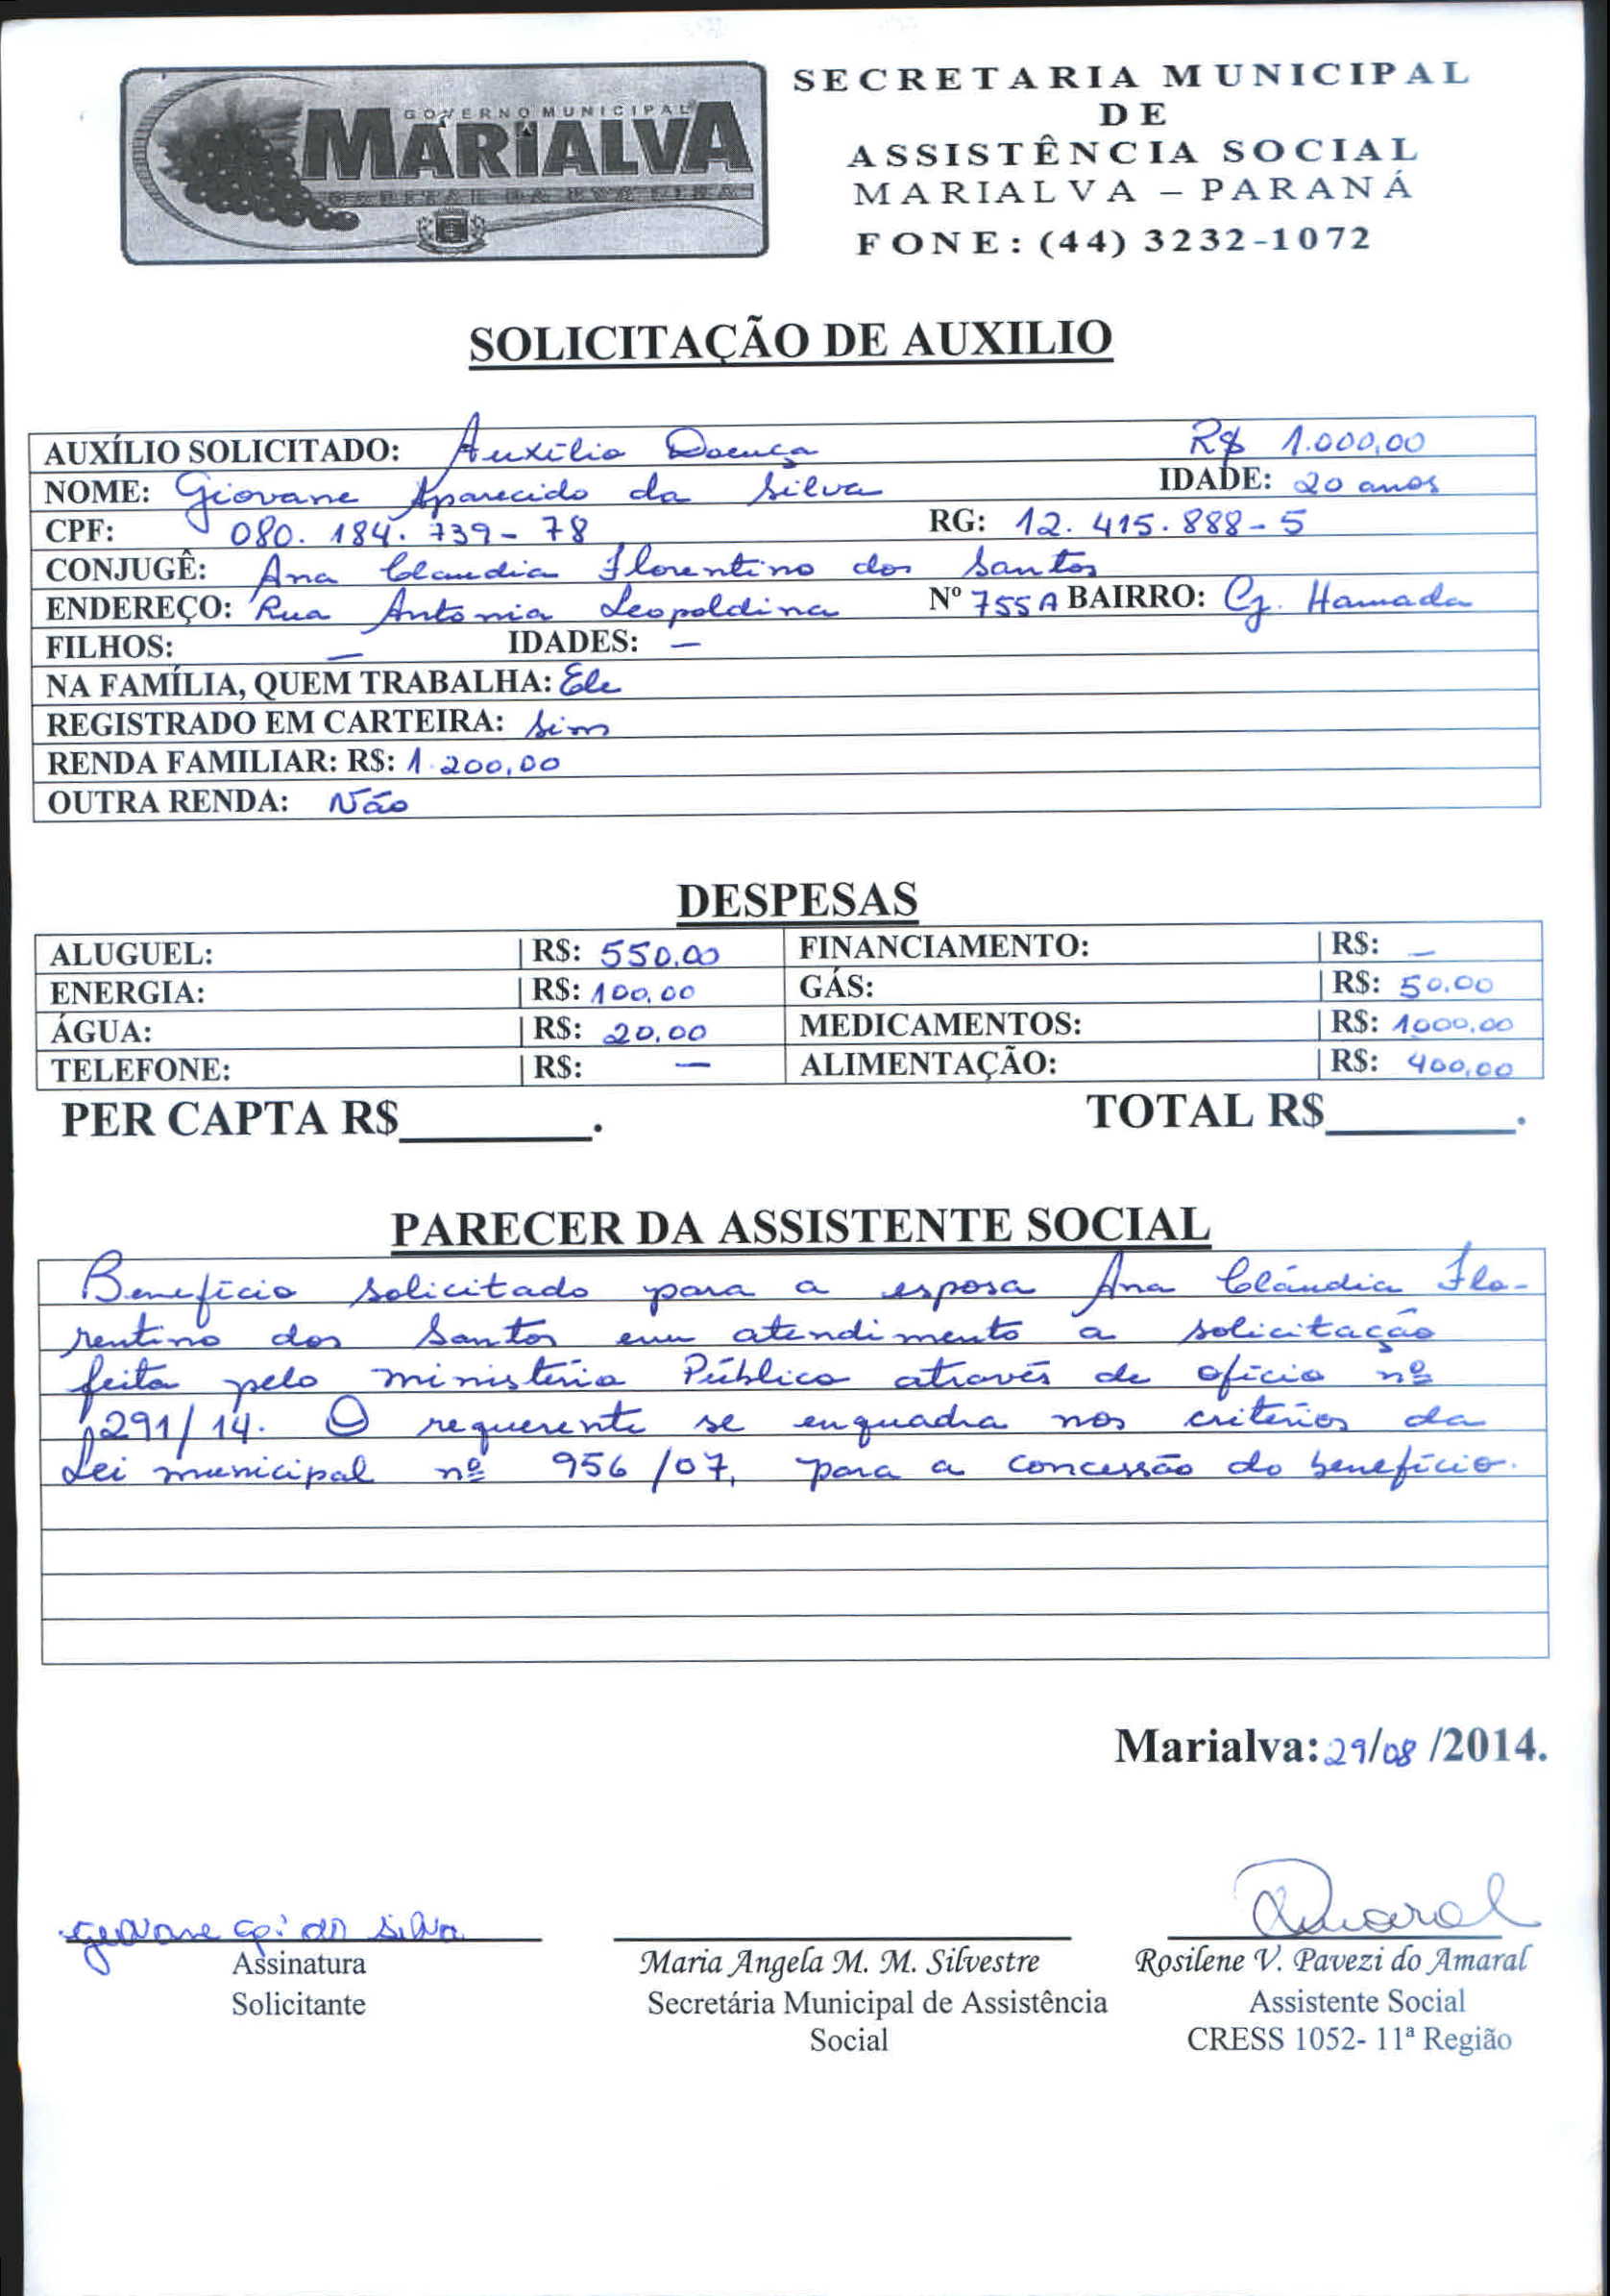 GOVERNO MUNICIPAL
MARIALVA
CAPITAL DA UVA FINA
SECRETARIA MUNICIPAL
DE
ASSISTÊNCIA SOCIAL
MARIALVA – PARANÁ
FONE: (44) 3232-1072
SOLICITAÇÃO DE AUXILIO
AUXÍLIO SOLICITADO: Auxílio Doença R$ 1.000,00
NOME: Giovane Aparecido da Silva IDADE: 20 anos
CPF: 080.184.739-78 RG: 12.415.888-5
CONJUGÊ: Ana Claudia Florentino dos Santos
ENDEREÇO: Rua Antonia Leopoldina Nº 755A BAIRRO: Cj. Hamada
FILHOS: – IDADES: –
NA FAMÍLIA, QUEM TRABALHA: Ele
REGISTRADO EM CARTEIRA: Sim
RENDA FAMILIAR: R$: 1.200,00
OUTRA RENDA: Não
DESPESAS
ALUGUEL: R$: 550,00 FINANCIAMENTO: R$: –
ENERGIA: R$: 100,00 GÁS: R$: 50,00
ÁGUA: R$: 20,00 MEDICAMENTOS: R$: 1000,00
TELEFONE: R$: – ALIMENTAÇÃO: R$: 400,00
PER CAPTA R$________. TOTAL R$________.
PARECER DA ASSISTENTE SOCIAL
Benefício solicitado para a esposa Ana Cláudia Flo-
rentino dos Santos em atendimento a solicitação
feita pelo ministério Público através de ofício nº
291/14. O requerente se enquadra nos critérios da
Lei municipal nº 956/07, para a concessão do benefício.
Marialva: 29/08 /2014.
Amaral
Assinatura
Solicitante
Maria Angela M. M. Silvestre
Secretária Municipal de Assistência
Social
Rosilene V. Pavezi do Amaral
Assistente Social
CRESS 1052- 11ª Região